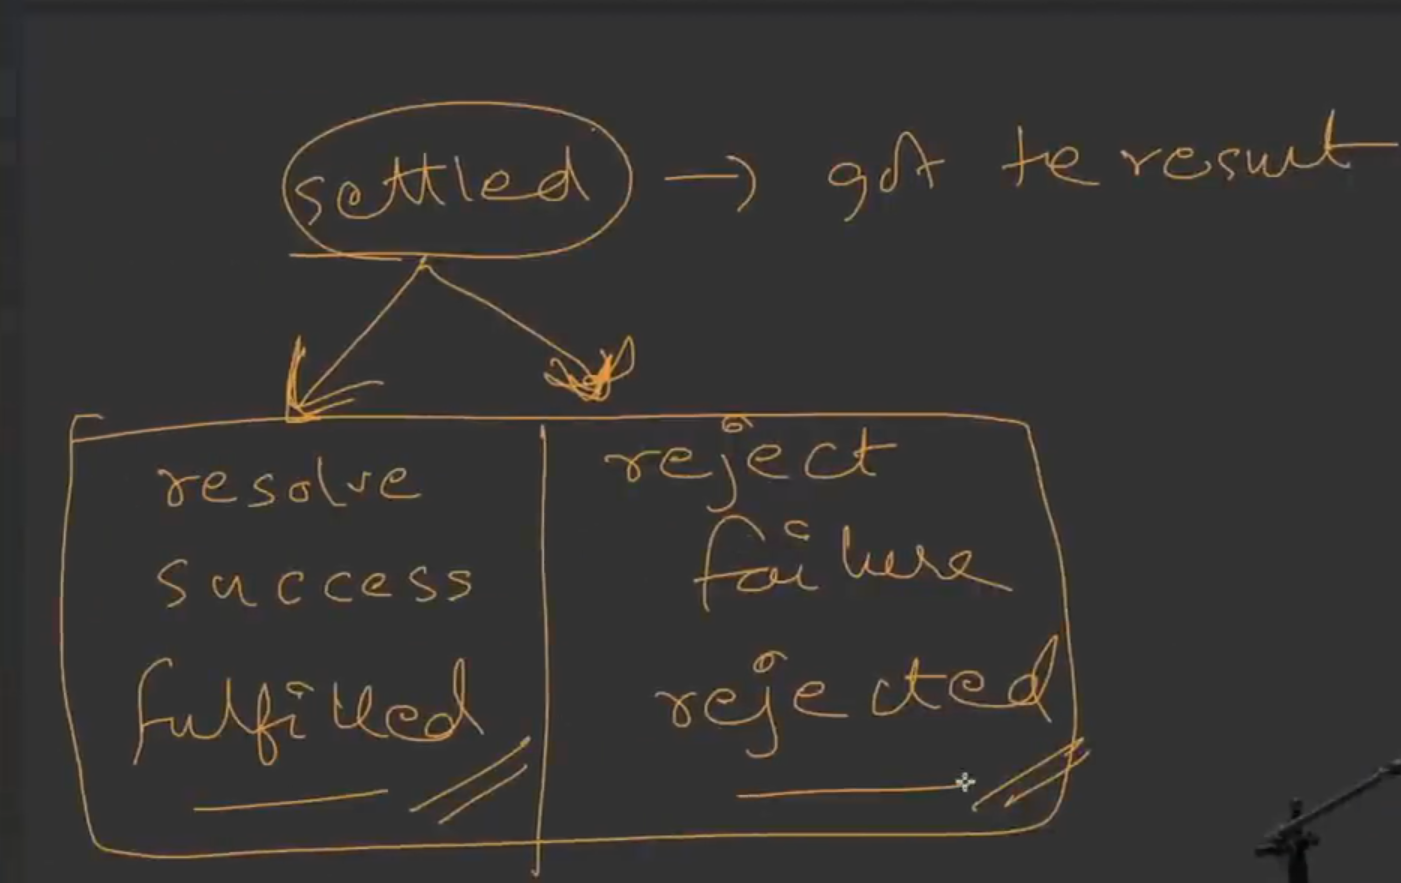 settled → got te result
resolve
success
fulfilled
reject
failure
rejected